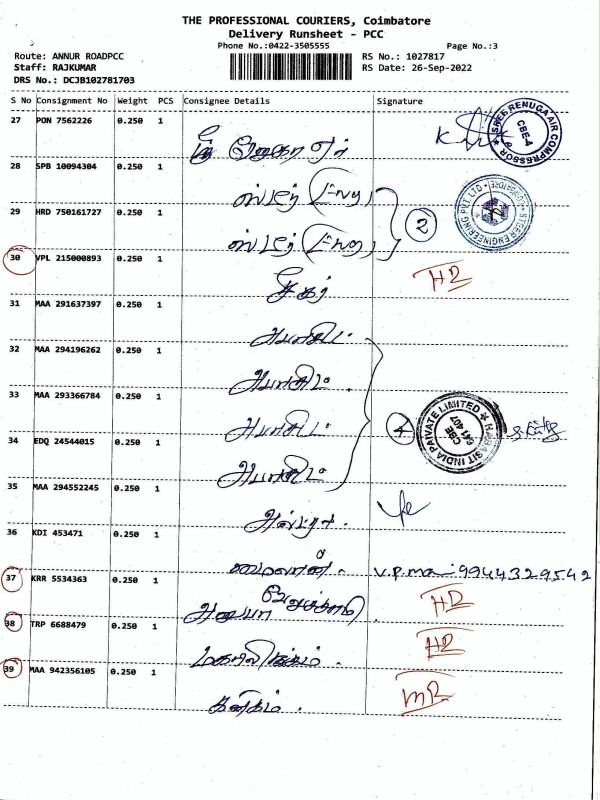 THE PROFESSIONAL COURIERS, Coimbatore
Delivery Runsheet - PCC
Phone No.:0422-3505555
Page No.:3
Route: ANNUR ROADPCC
RS No.: 1027817
Staff: RAJKUMAR
RS Date: 26-Sep-2022
DRS No.: DCJB102781703
S No Consignment No Weight PCS Consignee Details Signature
27 PON 7562226 0.250 1
SREE RENUGA AIR COMPRESSOR CBE-4
28 SPB 10094304 0.250 1
ஸ்டீர்
29 HRD 750161727 0.250 1
ஸ்டீர்
2
STEER ENGINEERING PVT. LTD
30 VPL 215000893 0.250 1
சேகர்
31 MAA 291637397 0.250 1
அபாசிட்
32 MAA 294196262 0.250 1
அபாசிட்
33 MAA 293366784 0.250 1
அபாசிட்
34 EDQ 24544015 0.250 1
அபாசிட்
4
HABASIT INDIA PRIVATE LIMITED CBE 641 407
35 MAA 294552245 0.250 1
36 KDI 453471 0.250 1
V.P.Mani 9944329542
37 KRR 5534363 0.250 1
38 TRP 6688479 0.250 1
மகாலிங்கம்
39 MAA 942356105 0.250 1
கனகம்